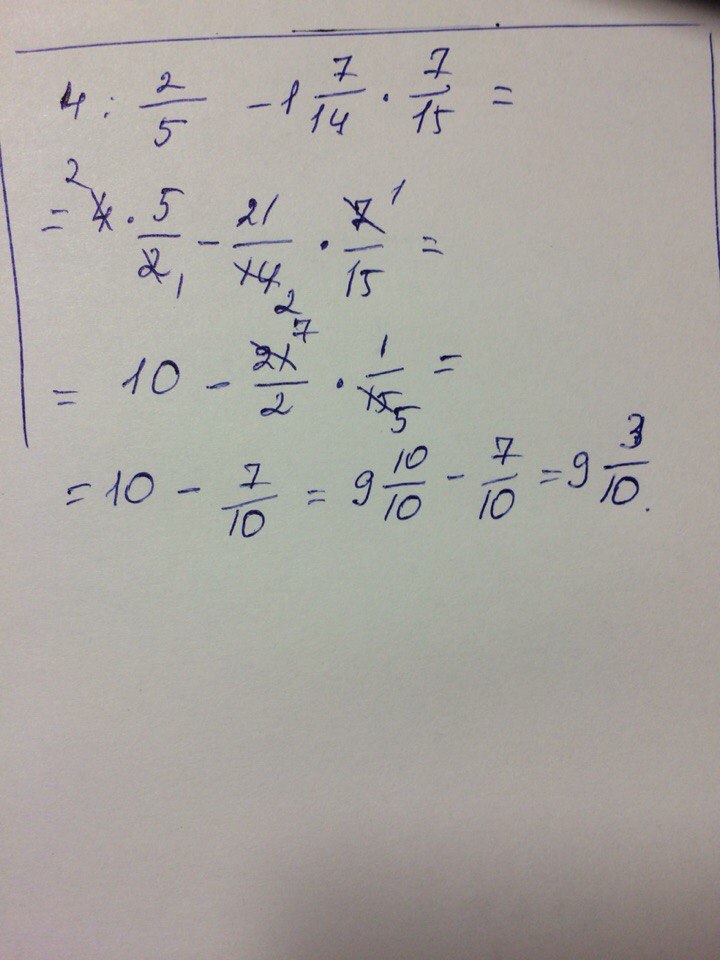 4 : 2/5 - 1 7/14 · 7/15 =
= 4 2 · 5/2 1 - 21/14 2 · 7 1/15 =
= 10 - 21 7/2 · 1/15 5 =
= 10 - 7/10 = 9 10/10 - 7/10 = 9 3/10.